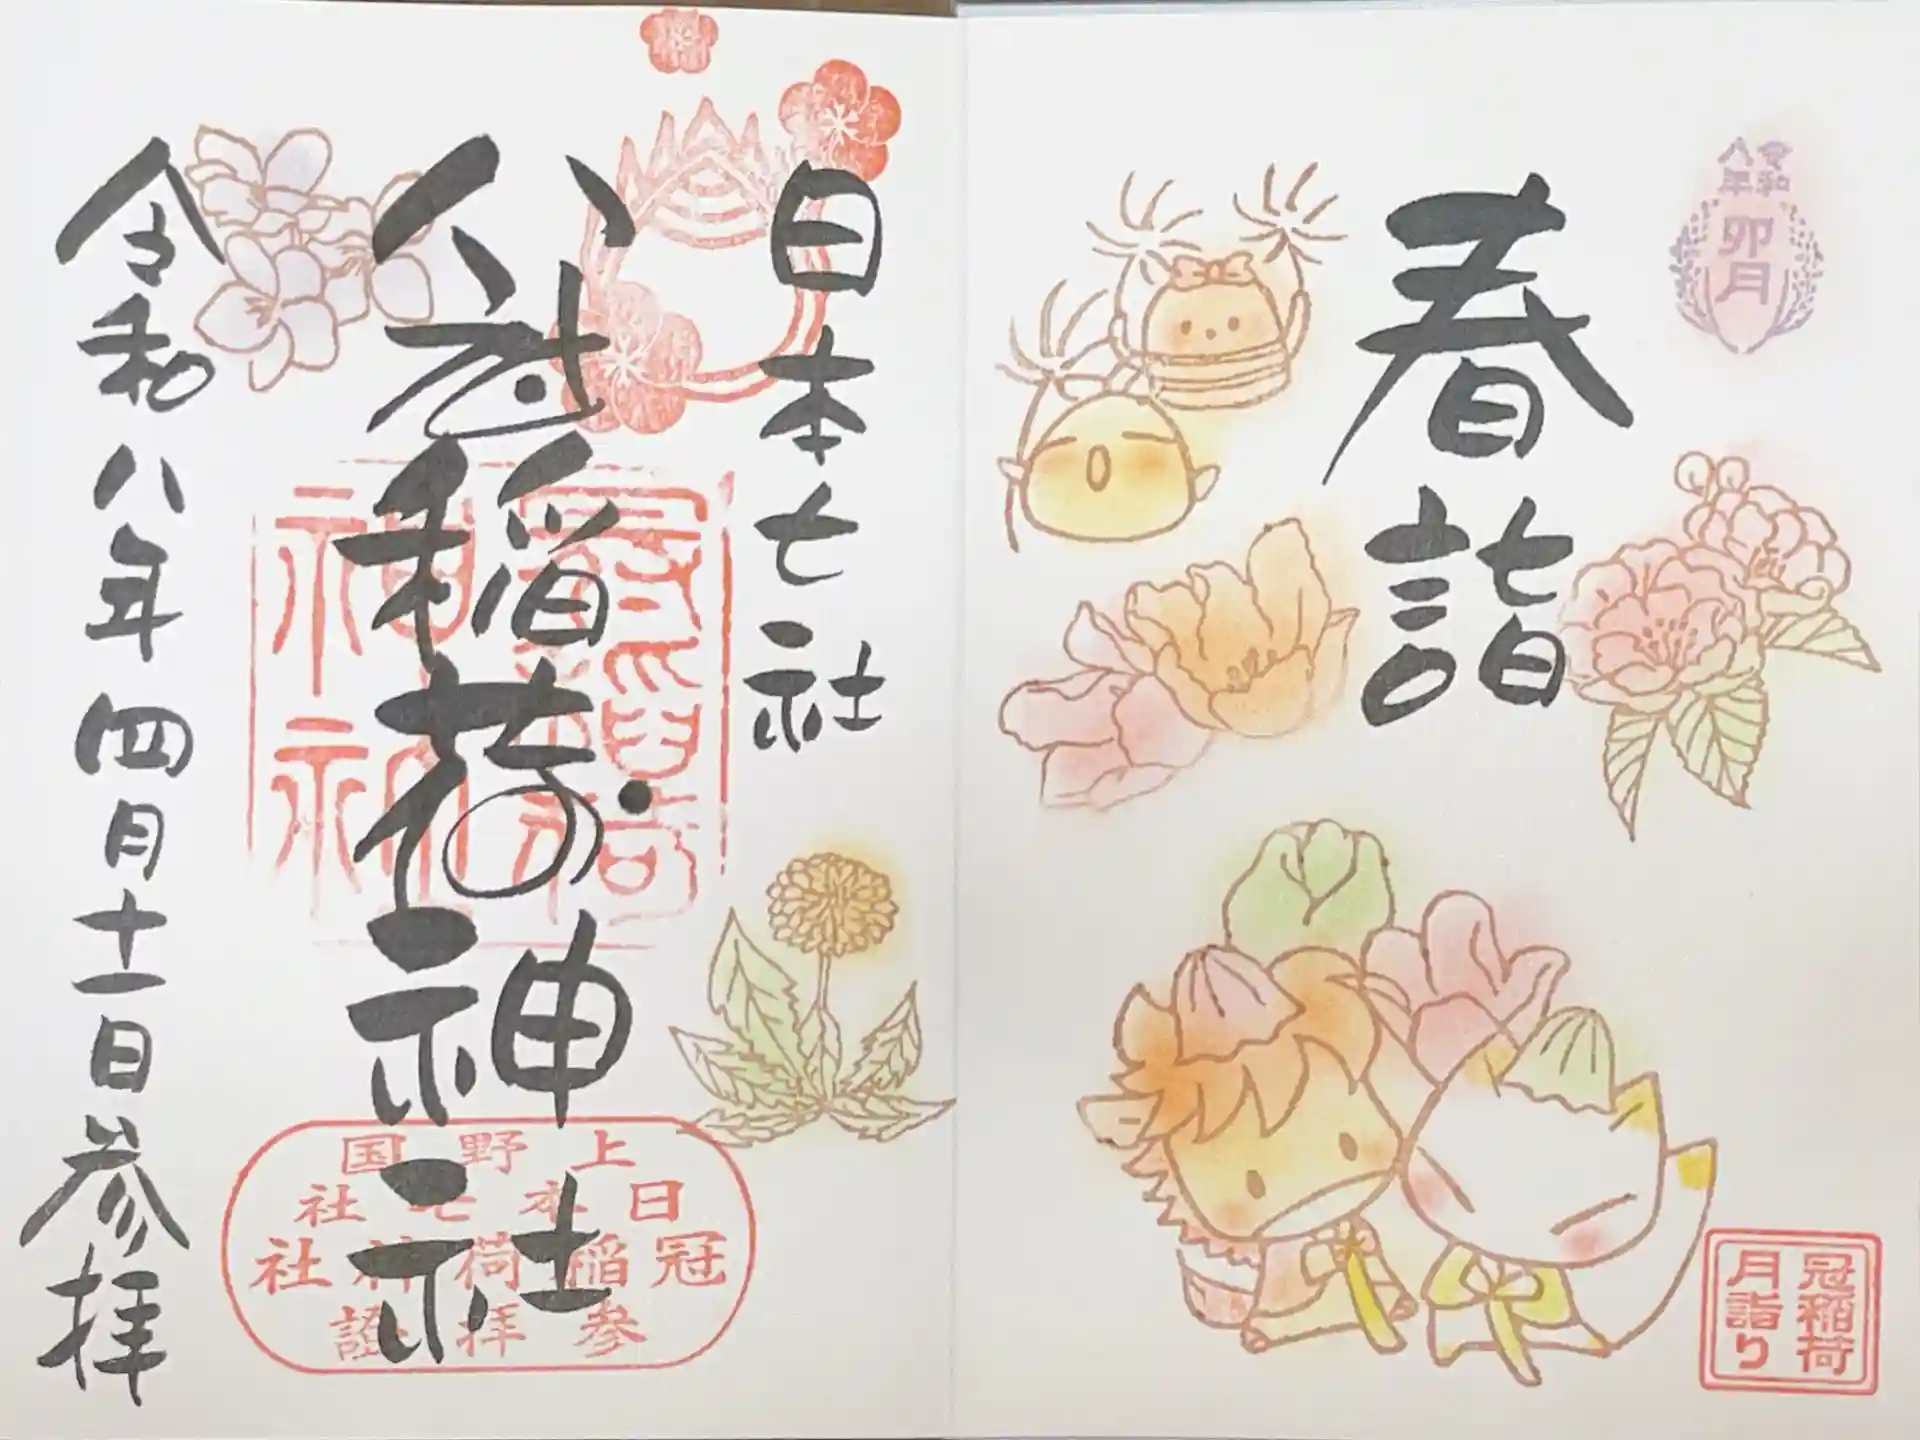 令和
八年
卯月
春詣
冠稲荷
月詣り
日本七社
冠稲荷神社
冠稲荷
神社
上野国
日本七社
冠稲荷神社
参拝證
令和八年四月十一日参拝